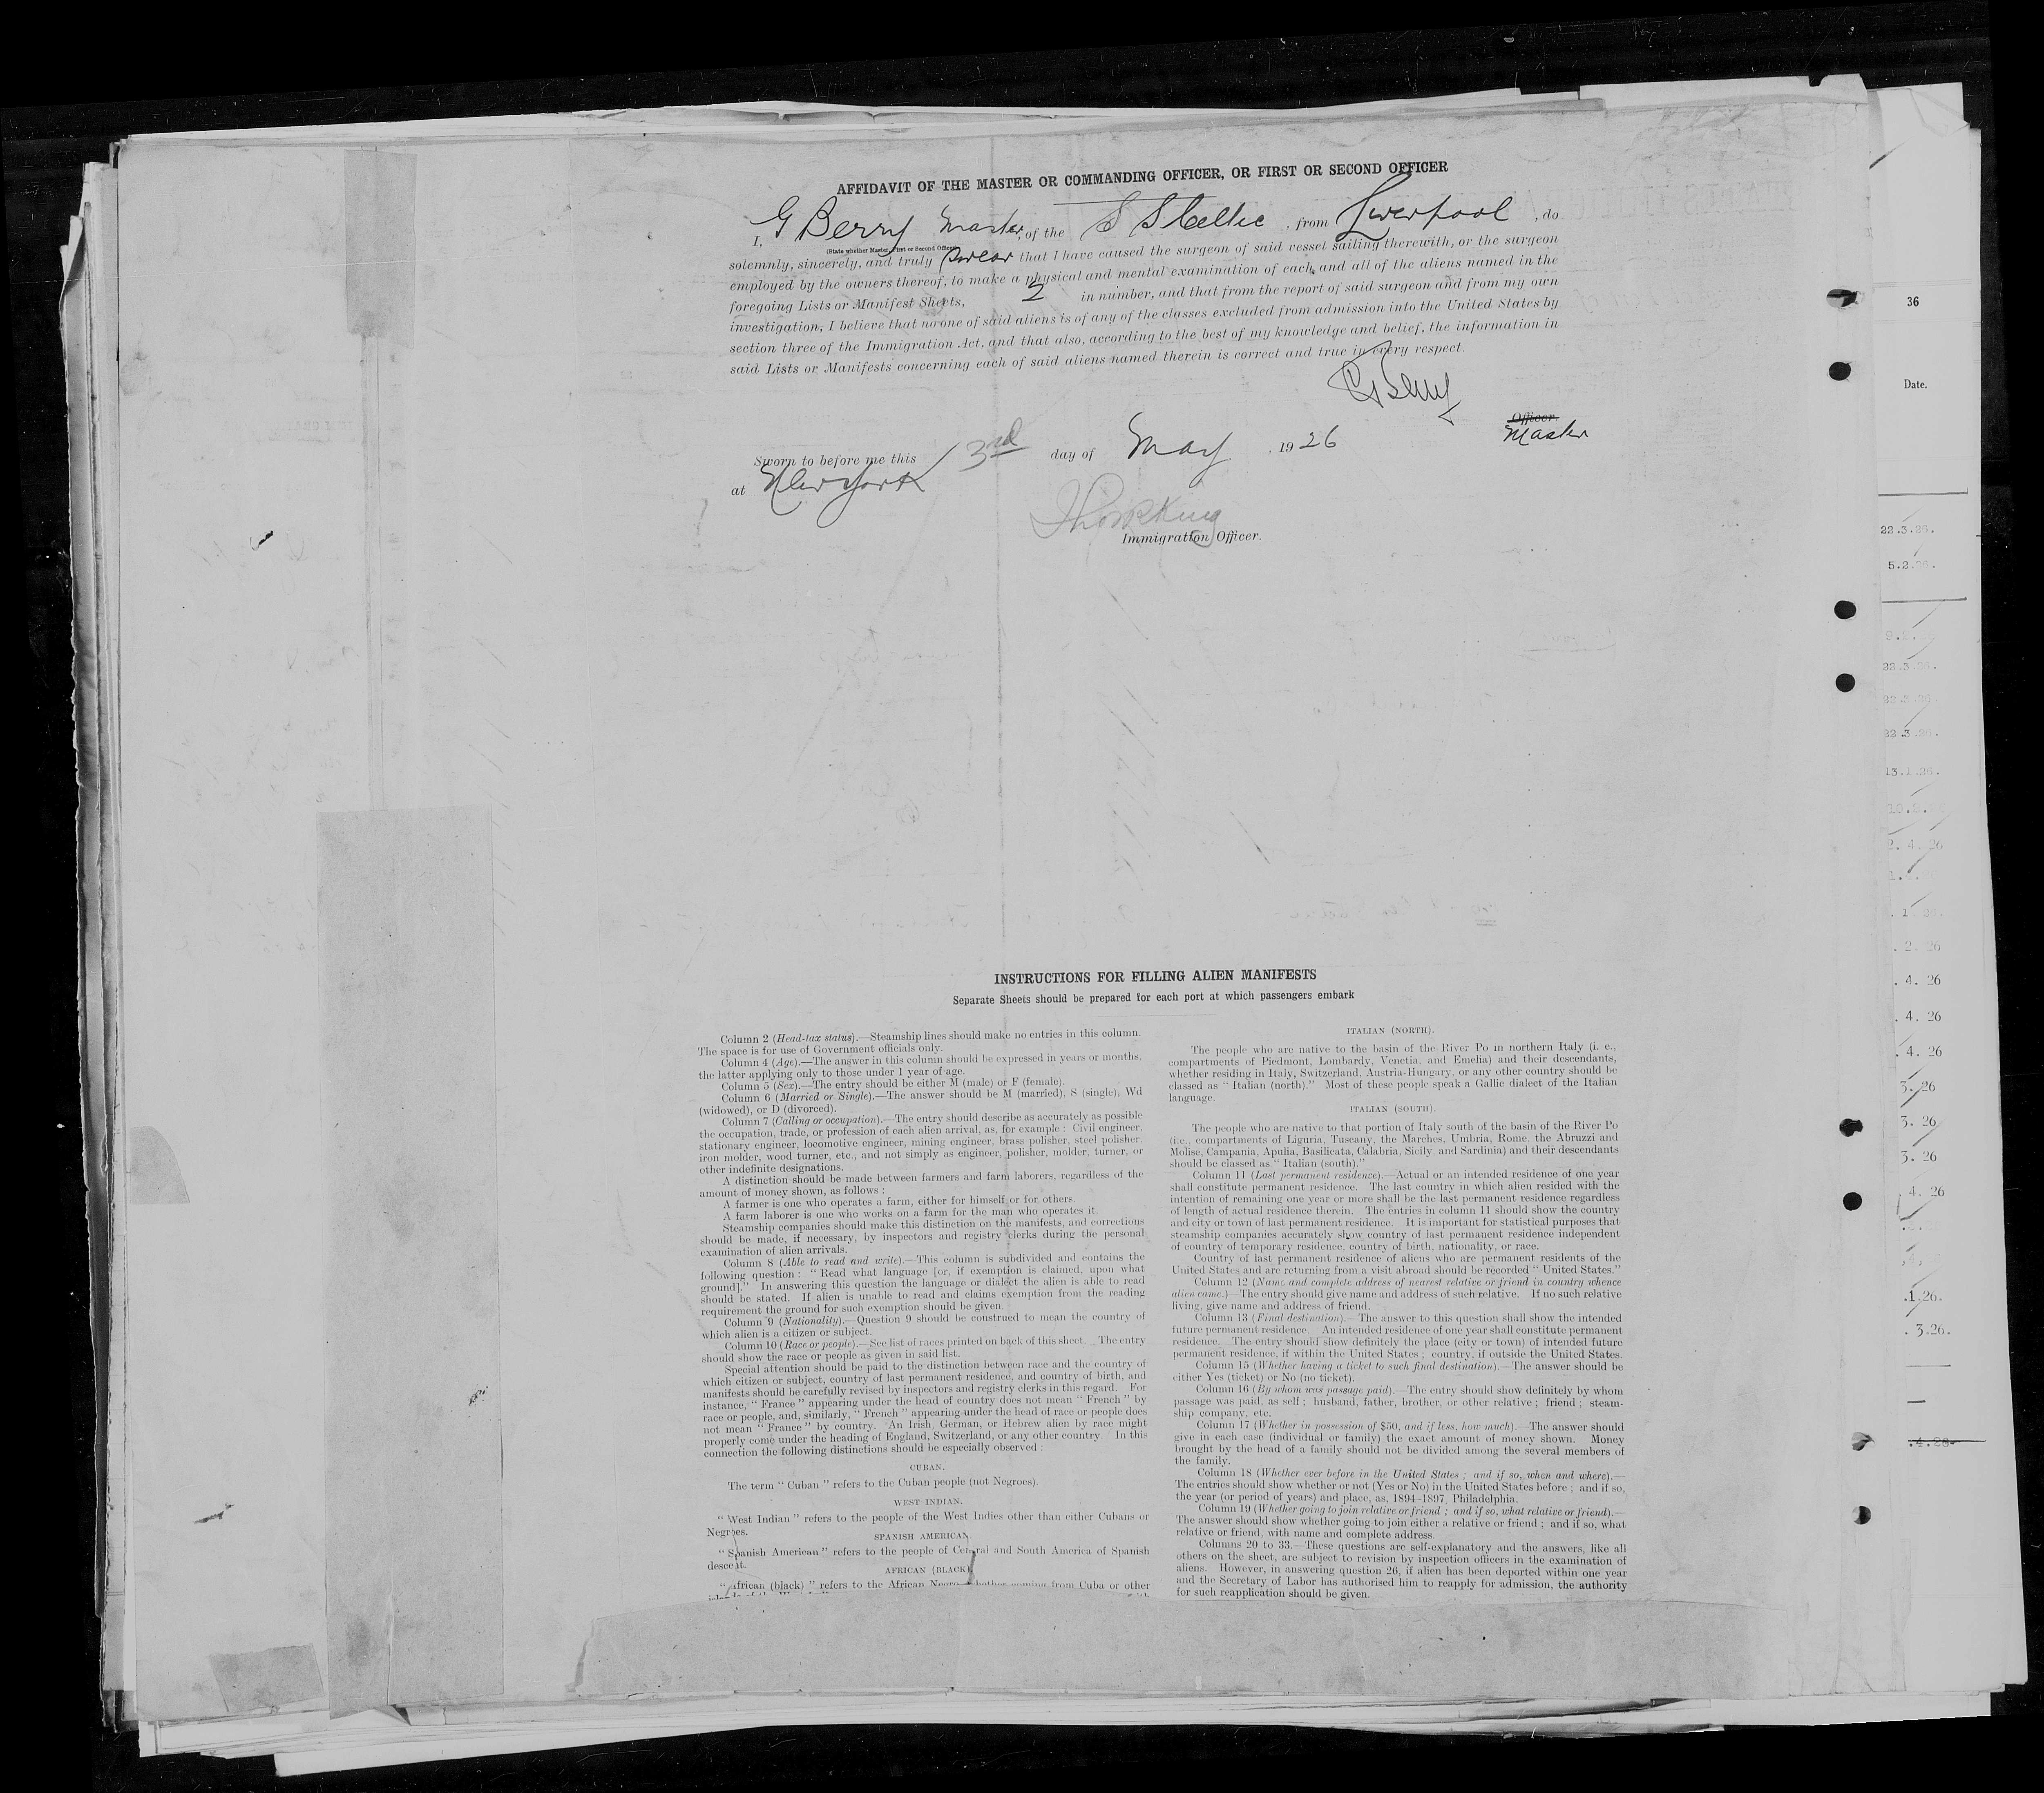 AFFIDAVIT OF THE MASTER OR COMMANDING OFFICER, OR FIRST OR SECOND OFFICER
I, G Berry Master, of the S S Celtic, from Liverpool, do
(State whether Master, First or Second Officer)
solemnly, sincerely, and truly swear that I have caused the surgeon of said vessel sailing therewith, or the surgeon
employed by the owners thereof, to make a physical and mental examination of each and all of the aliens named in the
foregoing Lists or Manifest Sheets, 2 in number, and that from the report of said surgeon and from my own
investigation, I believe that no one of said aliens is of any of the classes excluded from admission into the United States by
section three of the Immigration Act, and that also, according to the best of my knowledge and belief, the information in
said Lists or Manifests concerning each of said aliens named therein is correct and true in every respect.
G Berry
Officer
Master
Sworn to before me this 3rd day of May, 1926
at New York
Immigration Officer.
INSTRUCTIONS FOR FILLING ALIEN MANIFESTS
Separate Sheets should be prepared for each port at which passengers embark
Column 2 (Head-tax status).—Steamship lines should make no entries in this column.
The space is for use of Government officials only.
Column 4 (Age).—The answer in this column should be expressed in years or months,
the latter applying only to those under 1 year of age.
Column 5 (Sex).—The entry should be either M (male) or F (female).
Column 6 (Married or Single).—The answer should be M (married), S (single), Wd
(widowed), or D (divorced).
Column 7 (Calling or occupation).—The entry should describe as accurately as possible
the occupation, trade, or profession of each alien arrival, as, for example : Civil engineer,
stationary engineer, locomotive engineer, mining engineer, brass polisher, steel polisher,
iron molder, wood turner, etc., and not simply as engineer, polisher, molder, turner, or
other indefinite designations.
A distinction should be made between farmers and farm laborers, regardless of the
amount of money shown, as follows :
A farmer is one who operates a farm, either for himself or for others.
A farm laborer is one who works on a farm for the man who operates it.
Steamship companies should make this distinction on the manifests, and corrections
should be made, if necessary, by inspectors and registry clerks during the personal
examination of alien arrivals.
Column 8 (Able to read and write).—This column is subdivided and contains the
following question : " Read what language [or, if exemption is claimed, upon what
ground]." In answering this question the language or dialect the alien is able to read
should be stated. If alien is unable to read and claims exemption from the reading
requirement the ground for such exemption should be given.
Column 9 (Nationality).—Question 9 should be construed to mean the country of
which alien is a citizen or subject.
Column 10 (Race or people).—See list of races printed on back of this sheet. The entry
should show the race or people as given in said list.
Special attention should be paid to the distinction between race and the country of
which citizen or subject, country of last permanent residence, and country of birth, and
manifests should be carefully revised by inspectors and registry clerks in this regard. For
instance, " France " appearing under the head of country does not mean " French " by
race or people, and, similarly, " French " appearing under the head of race or people does
not mean " France " by country. An Irish, German, or Hebrew alien by race might
properly come under the heading of England, Switzerland, or any other country. In this
connection the following distinctions should be especially observed :
CUBAN.
The term " Cuban " refers to the Cuban people (not Negroes).
WEST INDIAN.
" West Indian " refers to the people of the West Indies other than either Cubans or
Negroes.
SPANISH AMERICAN.
" Spanish American " refers to the people of Central and South America of Spanish
descent.
AFRICAN (BLACK)
" African (black) " refers to the African Negro whether coming from Cuba or other
ITALIAN (NORTH).
The people who are native to the basin of the River Po in northern Italy (i. e.,
compartments of Piedmont, Lombardy, Venetia, and Emelia) and their descendants,
whether residing in Italy, Switzerland, Austria-Hungary, or any other country should be
classed as " Italian (north)." Most of these people speak a Gallic dialect of the Italian
language.
ITALIAN (SOUTH).
The people who are native to that portion of Italy south of the basin of the River Po
(i.e., compartments of Liguria, Tuscany, the Marches, Umbria, Rome, the Abruzzi and
Molise, Campania, Apulia, Basilicata, Calabria, Sicily and Sardinia) and their descendants
should be classed as " Italian (south)."
Column 11 (Last permanent residence).—Actual or an intended residence of one year
shall constitute permanent residence. The last country in which alien resided with the
intention of remaining one year or more shall be the last permanent residence regardless
of length of actual residence therein. The entries in column 11 should show the country
and city or town of last permanent residence. It is important for statistical purposes that
steamship companies accurately show country of last permanent residence independent
of country of temporary residence, country of birth, nationality, or race.
Country of last permanent residence of aliens who are permanent residents of the
United States and are returning from a visit abroad should be recorded " United States."
Column 12 (Name and complete address of nearest relative or friend in country whence
alien came.)—The entry should give name and address of such relative. If no such relative
living, give name and address of friend.
Column 13 (Final destination).—The answer to this question shall show the intended
future permanent residence. An intended residence of one year shall constitute permanent
residence. The entry should show definitely the place (city or town) of intended future
permanent residence, if within the United States ; country, if outside the United States.
Column 15 (Whether having a ticket to such final destination).—The answer should be
either Yes (ticket) or No (no ticket).
Column 16 (By whom was passage paid).—The entry should show definitely by whom
passage was paid, as self ; husband, father, brother, or other relative ; friend ; steam-
ship company, etc.
Column 17 (Whether in possession of $50, and if less, how much).—The answer should
give in each case (individual or family) the exact amount of money shown. Money
brought by the head of a family should not be divided among the several members of
the family.
Column 18 (Whether ever before in the United States ; and if so, when and where).—
The entries should show whether or not (Yes or No) in the United States before ; and if so,
the year (or period of years) and place, as, 1894–1897, Philadelphia.
Column 19 (Whether going to join relative or friend ; and if so, what relative or friend).—
The answer should show whether going to join either a relative or friend ; and if so, what
relative or friend, with name and complete address.
Columns 20 to 33.—These questions are self-explanatory and the answers, like all
others on the sheet, are subject to revision by inspection officers in the examination of
aliens. However, in answering question 26, if alien has been deported within one year
and the Secretary of Labor has authorised him to reapply for admission, the authority
for such reapplication should be given.
36
Date.
22.3.26.
5.2.26.
22.3.26.
22.3.26.
22.3.26.
13.1.26.
2. 4. 26
. 2. 26
. 4. 26
. 4. 26
. 4. 26
3. 26
3. 26
3. 26
4. 26
.1.26.
. 3.26.